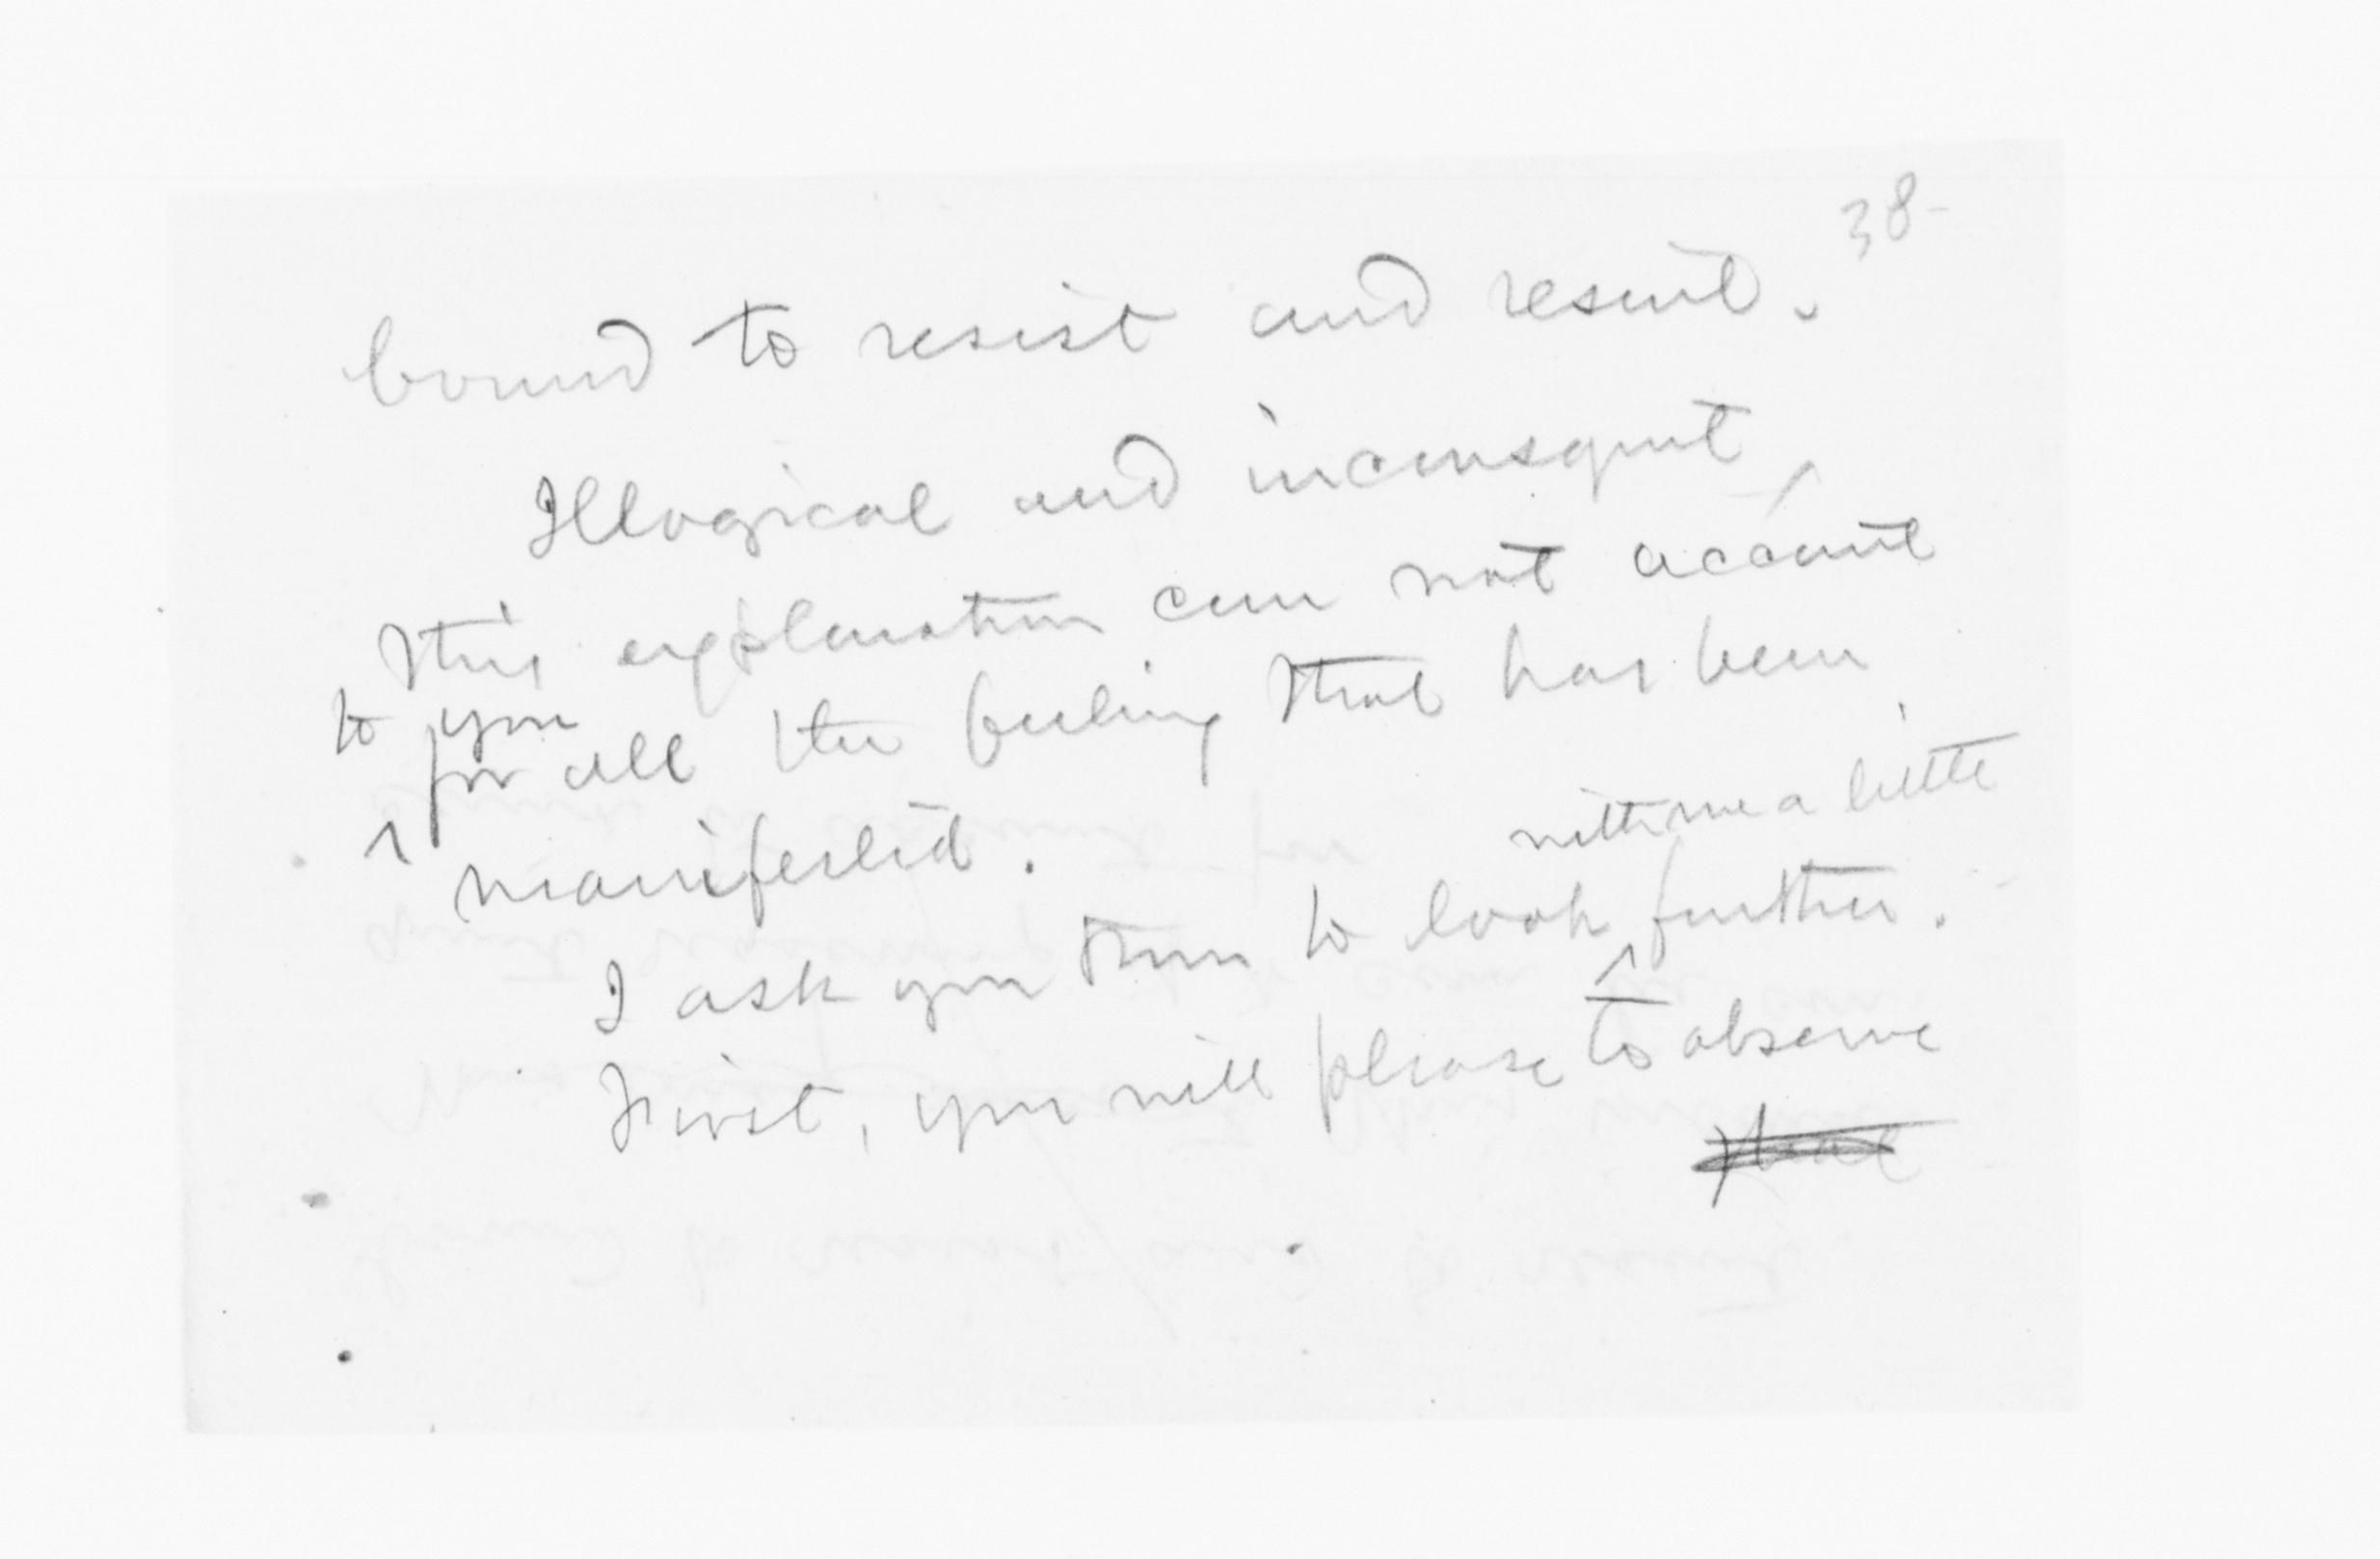 38-
bound to resist and resent.
Illogical and inconsequent,
this explanation can not account
to you
for all the feeling that has been
manifested.
with me a little
I ask you then to look further.
First, you will please to observe
that